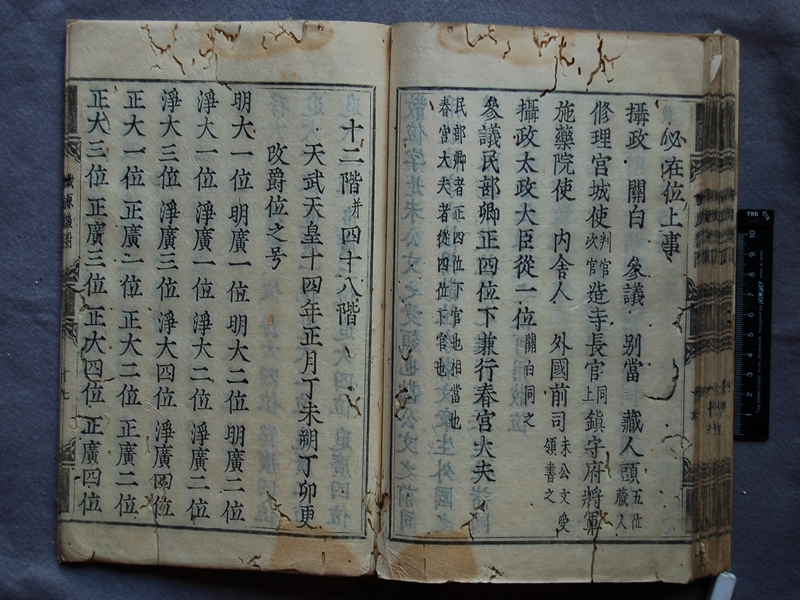 必在位上事
攝政 關白 參議 別當 藏人頭 五位藏人
修理宮城使 判官次官 造寺長官 同上 鎮守府將軍
施藥院使 内舍人 外國前司 未公文受領書之
攝政太政大臣從一位 關白同之
參議民部卿正四位下兼行春宮大夫
民部卿者正四位下官也相當也
春宮大夫者從四位下官也
十二階并四十八階
天武天皇十四年正月丁未朔丁卯更
改爵位之号
明大一位 明廣一位 明大二位 明廣二位
淨大一位 淨廣一位 淨大二位 淨廣二位
淨大三位 淨廣三位 淨大四位 淨廣四位
正大一位 正廣一位 正大二位 正廣二位
正大三位 正廣三位 正大四位 正廣四位
十七